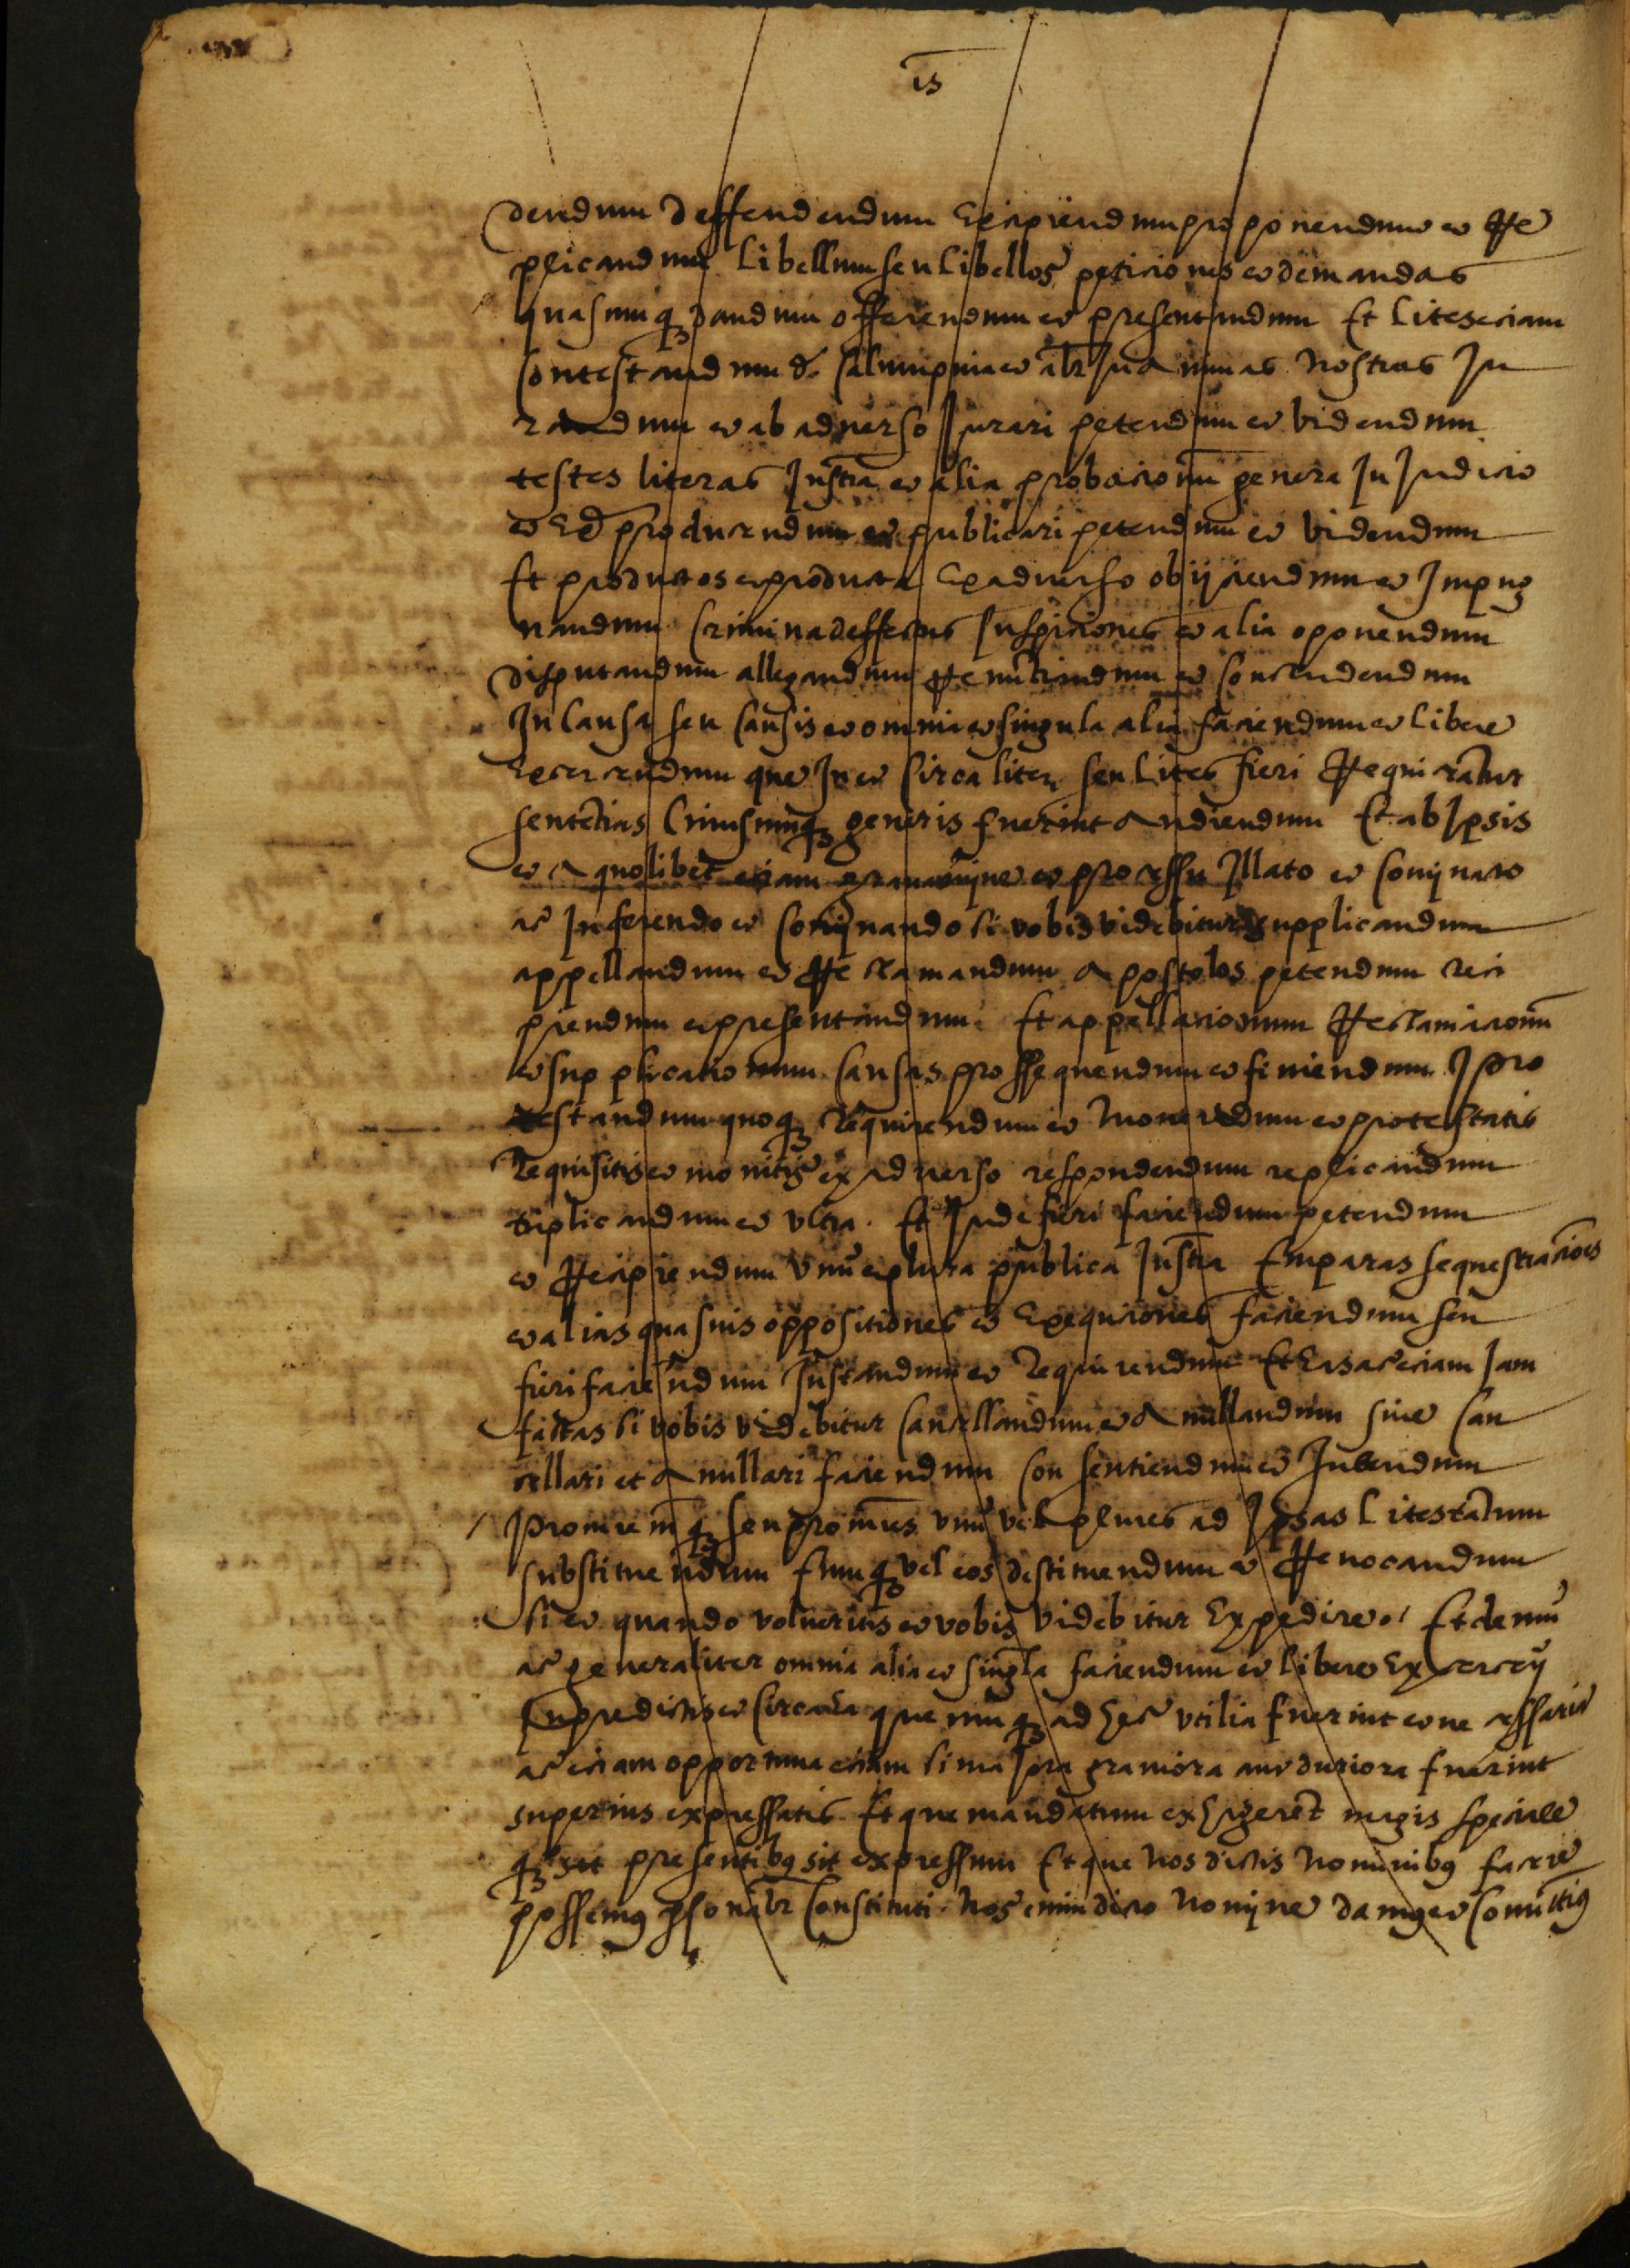 is
dendum deffendendum Excipiendum proponendum et Re
plicandum Libellum seu Libellos peticiones et demandas
quascumq₃ dandum offerendum et presentandum Et Lites eciam
contestandum de calumpnia et alr̄ In Animas nostras Ju
randum et ab adverso Jurari petendum et videndum
testes literas Instra et alia probacionū genera In Judicio
et Ex̄ producendum et publicari petendum et videndum
Et productos et producta Ex adverso obijciendum et Impug
nandum Crimina deffectus suspiciones et alia oponendum
disputandum allegandum Renūciandum et concludendum
In Causa seu Causis et omnia et singula alia faciendum et libere
Excercendum que In et Circa litem seu Lites fieri Requirantur
sentēcias Cuiuscumq₃ generis fuerint Audiendum Et ab Ipsis
et A quolibet eciam gravamine et processu Illato et cominato
ac Inferendo et cominando si vobis videbitur supplicandum
appellandum et Reclamandum Apostolos petendum reci
piendum et presentandum Et appellacionum Reclamacionū
et supplicationum causas prossequendum et finiendum Pro
testandum quoq₃ Requirendum et monendum et protestatis
Requisitis et monitis ex adverso respondendum replicandum
triplicandum et ultra Et Inde fieri faciendum petendum
et Recipiendum unū et plura publica Instra Emparas sequestraciōes
et alias quasvis oppositiones et Exequciones faciendum seu
fieri faciendum Instandum et Requirendum Et Eas ac eciam Jam
factas si vobis videbitur cancellandum et Anullandum sive can
cellari et Anullari faciendum consentiendum et Jubendum
Procurem q₃ seu procures unū vel plures ad Ipsas Lites tantum
substituendum Eumq₃ vel eos destituendum et Revocandum
si et quando volueritis et vobis videbitur Expedire Et demū
ac generaliter omnia alia et singla faciendum et libere Excercēd
In predictis et circa ea que cumq₃ ad hec utilia fuerint et necessaria
ac eciam opportuna eciam si maiora graviora aut duriora fuerint
superius expressatis Et que mandatum exhigerēt magis speciale
q₃ sit presentibꝯ sit expressum Et que nos dictis nominibꝯ facere
possemꝯ psonalr̄ constituti Nos enim dicto nomine damꝯ et comittimꝯ